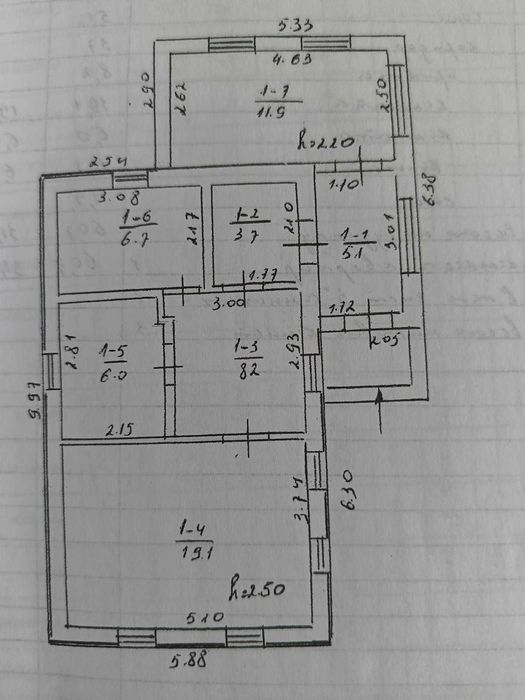 5.33
4.63
2.90
2.62
1-7
11.9
2.50
h=2.20
2.54
1.10
6.38
3.08
1-6
6.7
2.17
1-2
3.7
2.10
1-1
5.1
3.01
1.77
3.00
1.72
2.05
2.81
1-5
6.0
1-3
8.2
2.93
9.97
2.15
3.74
6.30
1-4
19.1
h=2.50
5.10
5.88